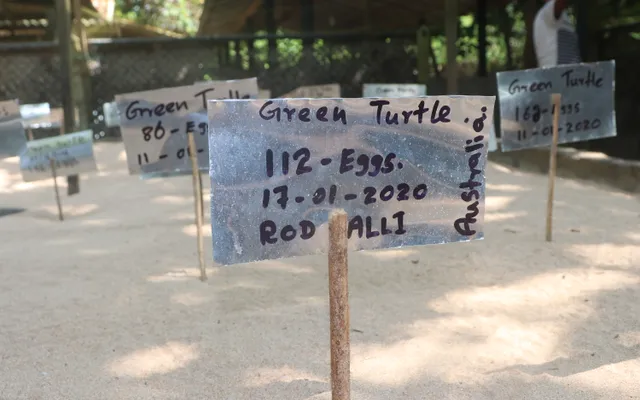 Green Turtle.
112 - Eggs.
17-01-2020
ROD ALLI
Australia.
Green Turtle
86 - Eg
11 - 0
Green Turtle
Eggs
11-01-2020